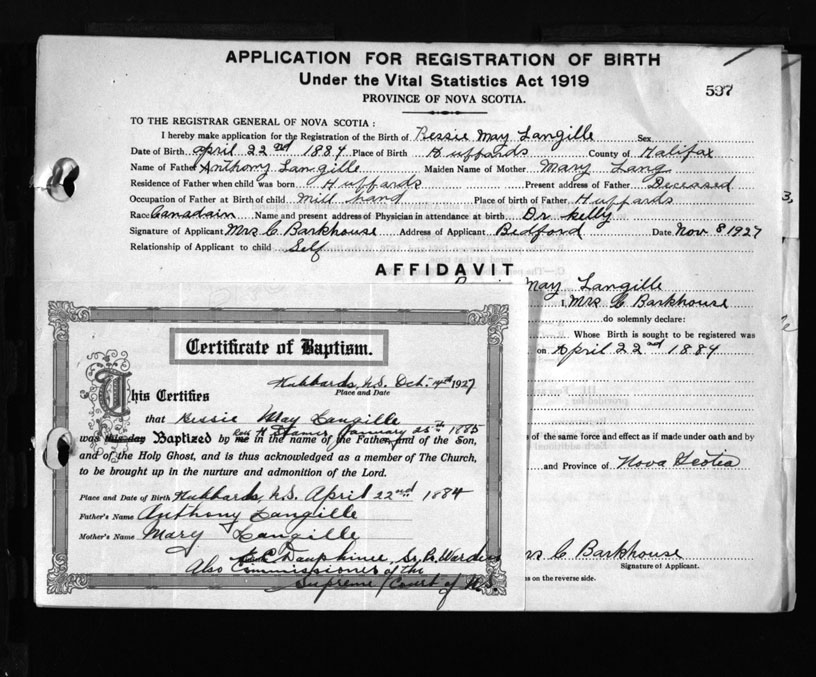 APPLICATION FOR REGISTRATION OF BIRTH
Under the Vital Statistics Act 1919
PROVINCE OF NOVA SCOTIA.
597
TO THE REGISTRAR GENERAL OF NOVA SCOTIA :
I hereby make application for the Registration of the Birth of Bessie May Langille Sex
Date of Birth April 22nd 1884 Place of Birth Huffards County of Halifax
Name of Father Anthony Langille Maiden Name of Mother Mary Lang
Residence of Father when child was born Huffards Present address of Father Deceased
Occupation of Father at Birth of child Mill hand Place of birth of Father Huffards
Race Canadain Name and present address of Physician in attendance at birth Dr Kelly
Signature of Applicant Mrs C Barkhouse Address of Applicant Bedford Date Nov 8 1927
Relationship of Applicant to child Self
AFFIDAVIT
May Langille
I, Mrs C Barkhouse
do solemnly declare:
Whose Birth is sought to be registered was
on April 22nd 1884
of the same force and effect as if made under oath and by
and Province of Nova Scotia
C Barkhouse
Signature of Applicant.
on the reverse side.
Certificate of Baptism.
Hubbards, N.S. Oct. 4th 1927
Place and Date
This Certifies
that Bessie May Langille
January 25th 1885
was this day Baptized by me in the name of the Father, and of the Son,
and of the Holy Ghost, and is thus acknowledged as a member of The Church,
to be brought up in the nurture and admonition of the Lord.
Place and Date of Birth Hubbards, N.S. April 22nd 1884
Father's Name Anthony Langille
Mother's Name Mary Langille
Dauphinee, Sr. Warden
Also Commissioner of the
Supreme Court of N.S.